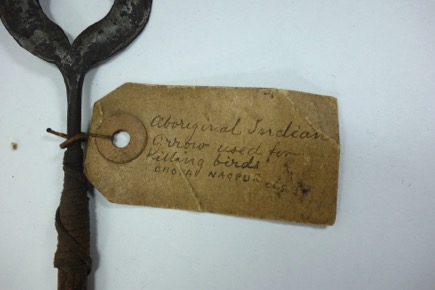 Aboriginal Indian
Arrow used for
killing birds
CHOTA NAGPUR